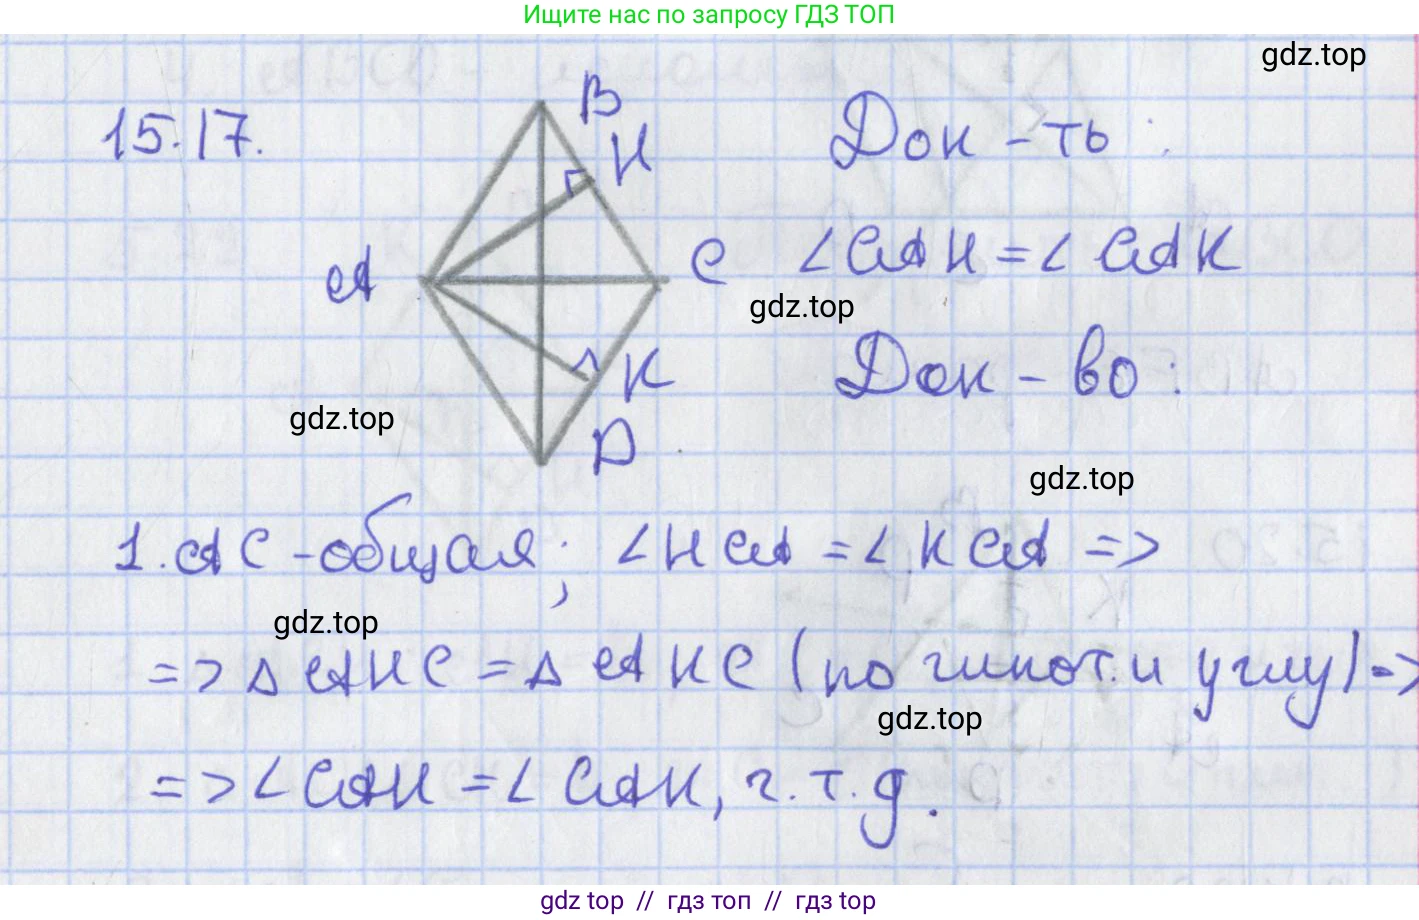 Ищите нас по запросу ГДЗ ТОП
gdz.top
15.17.
B
H
Док-ть:
A
C
∠CAH = ∠CAK
gdz.top
K
Док-во:
gdz.top
D
gdz.top
1. AC - общая; ∠HCA = ∠KCA =>
gdz.top
=> △AHC = △AKC (по гипот. и углу) =>
gdz.top
=> ∠CAH = ∠CAK, ч.т.д.
gdz top // гдз топ // гдз top